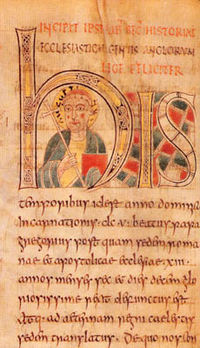 INCIPIT IPSIUS SEC HISTORIAE
ECCLESIASTICAE GENTIS ANGLORUM
FELICITER
HIS
temporibus id est anno dominicae
incarnationis dc v beatus papa
gregorius postquam sedem roma
nae et apostolicae ecclesiae xiii
annos menses sex et dies decem glo
riosissime rexit defunctus est
atque ad aeternam regni caelestis
sedem translatus. De quo nos con